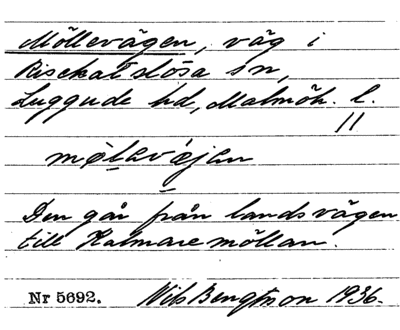 Möllevägen, väg i
Risekatslösa sn,
Luggude hd, Malmöh. l.
mølavæjan
Den går från landsvägen
till Kalmaremöllan.
Nr 5692. Nils Bengtson 1936.